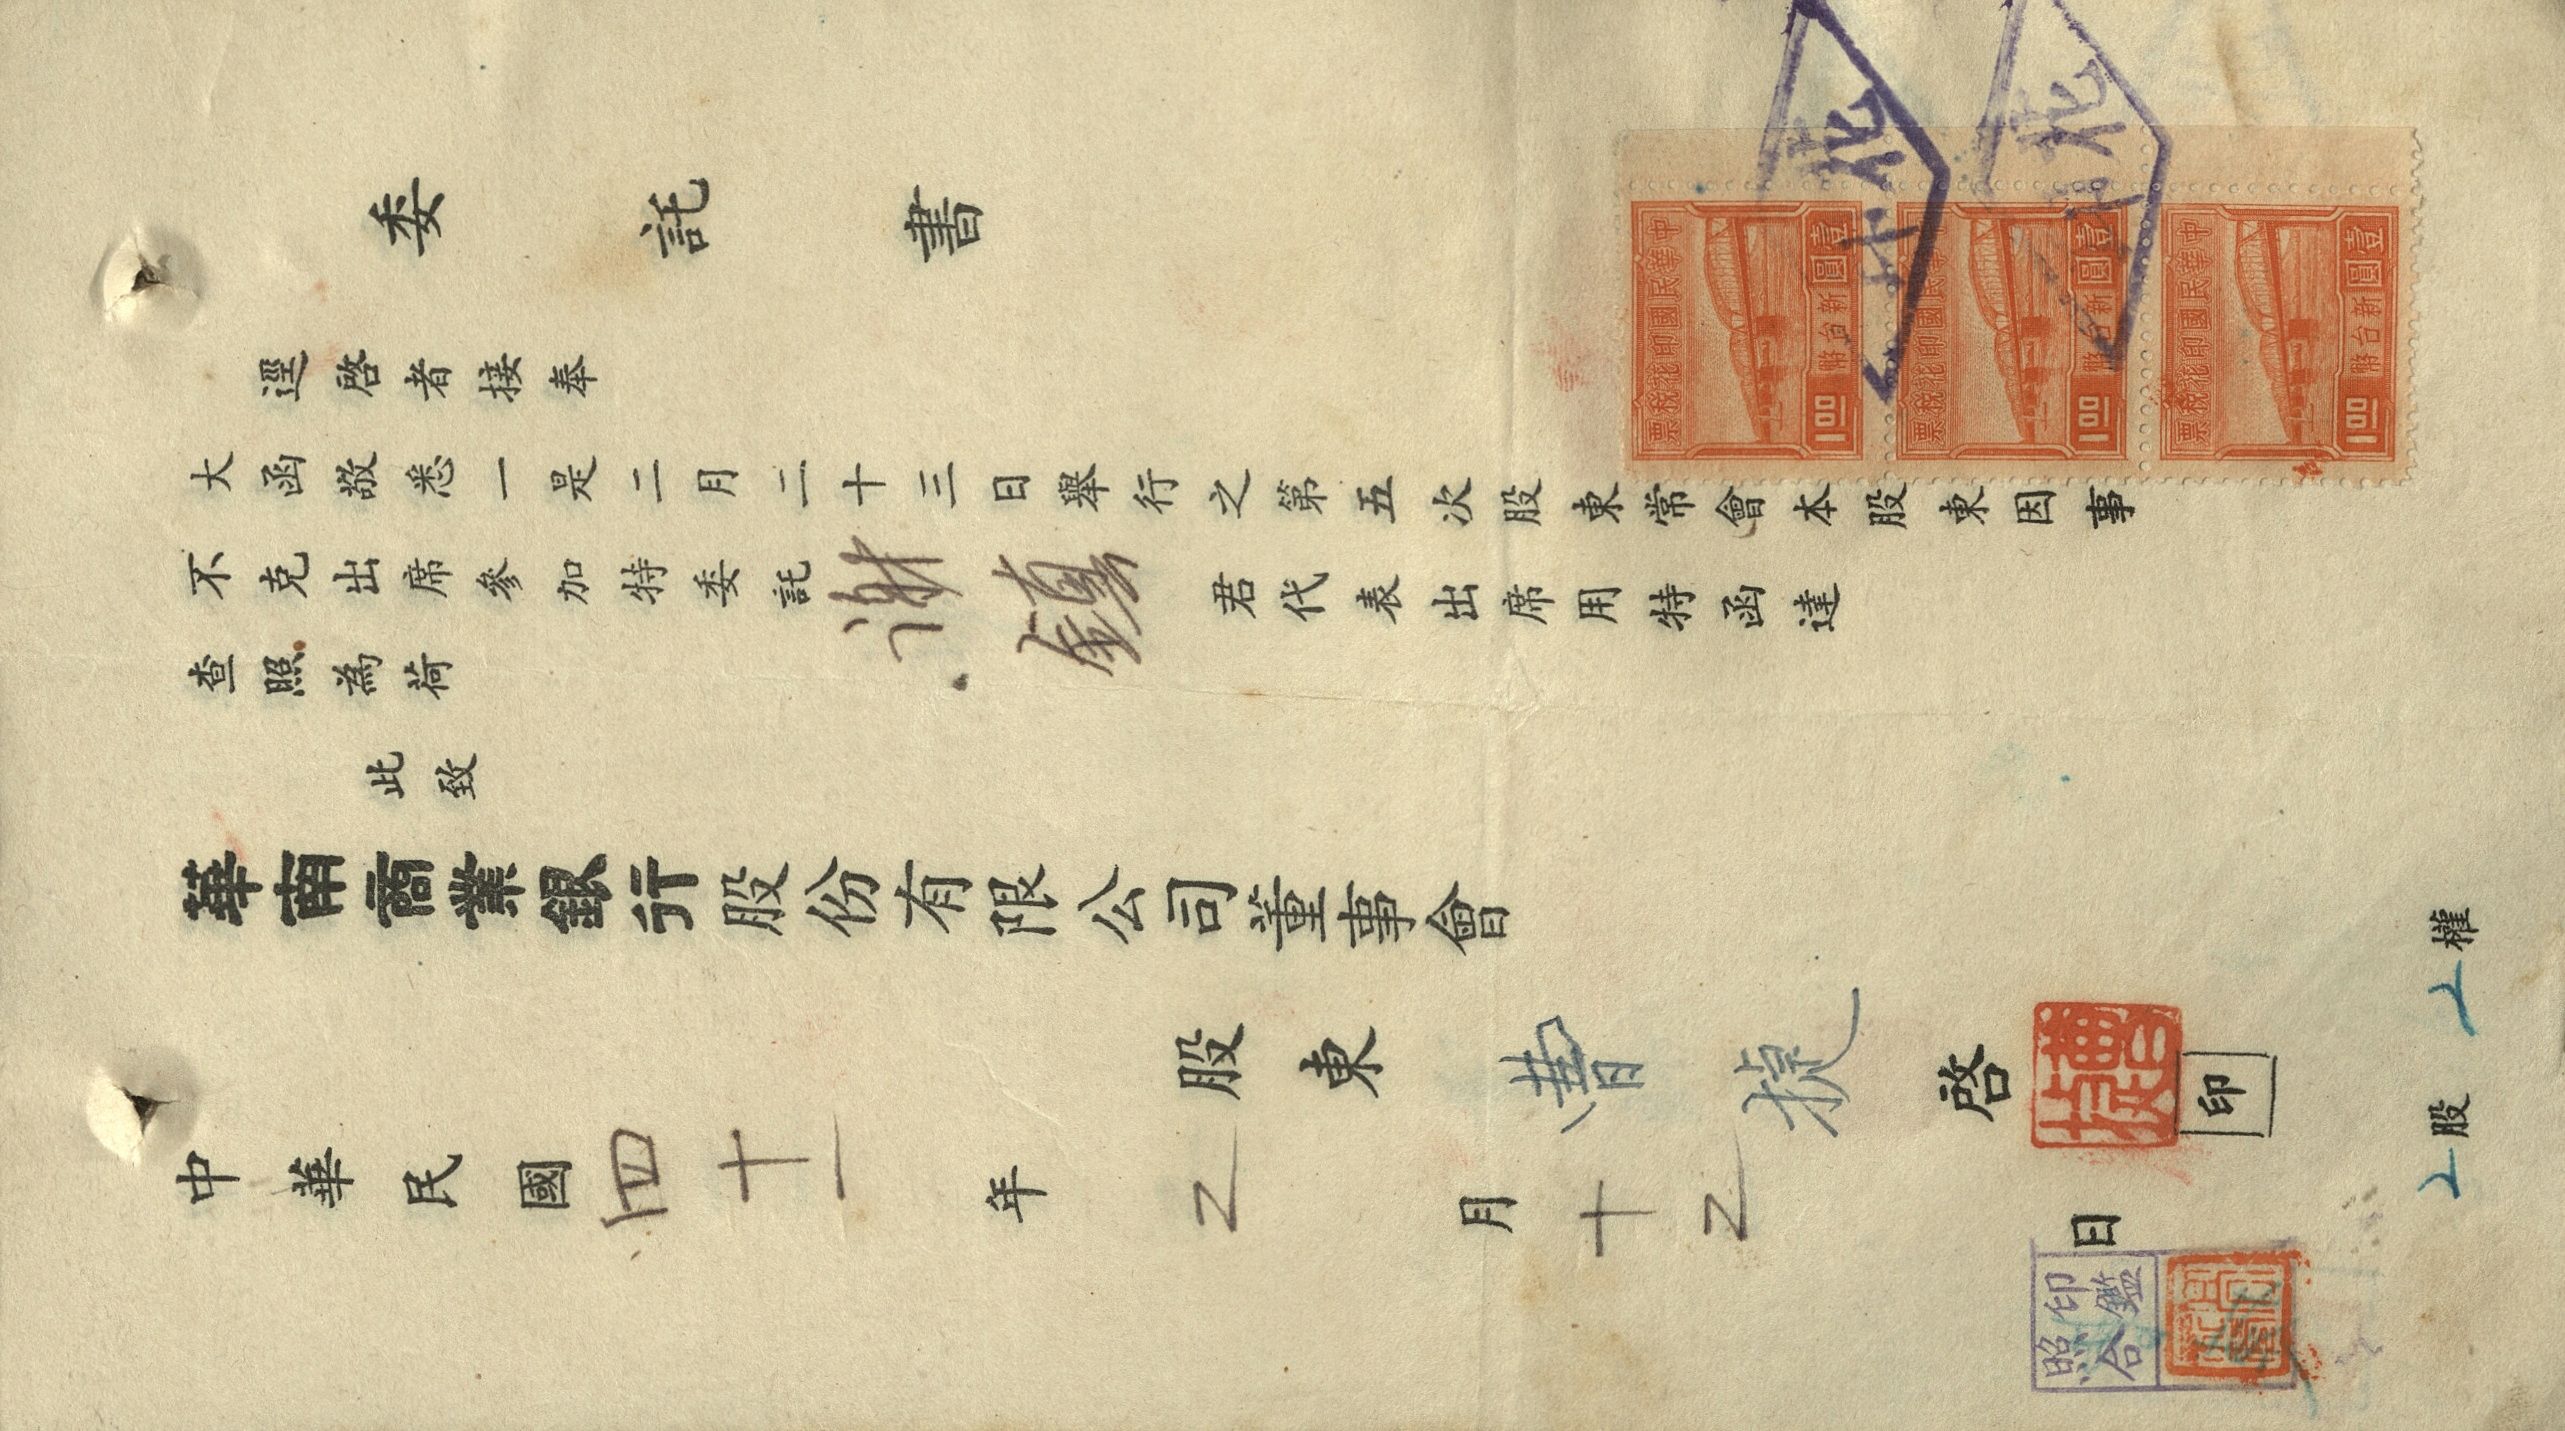 委託書
逕啓者接奉
大函敬悉一是二月二十三日舉行之第五次股東常會本股東因事
不克出席參加特委託謝鎮君代表出席用特函達
查照為荷
此致
華南商業銀行股份有限公司董事會
股東曹捷啓
印
中華民國四十一年2月十2日
2股2權
印鑑
照合
中華民國印花稅票
新台幣壹圓
1.00
中華民國印花稅票
新台幣壹圓
1.00
中華民國印花稅票
新台幣壹圓
1.00